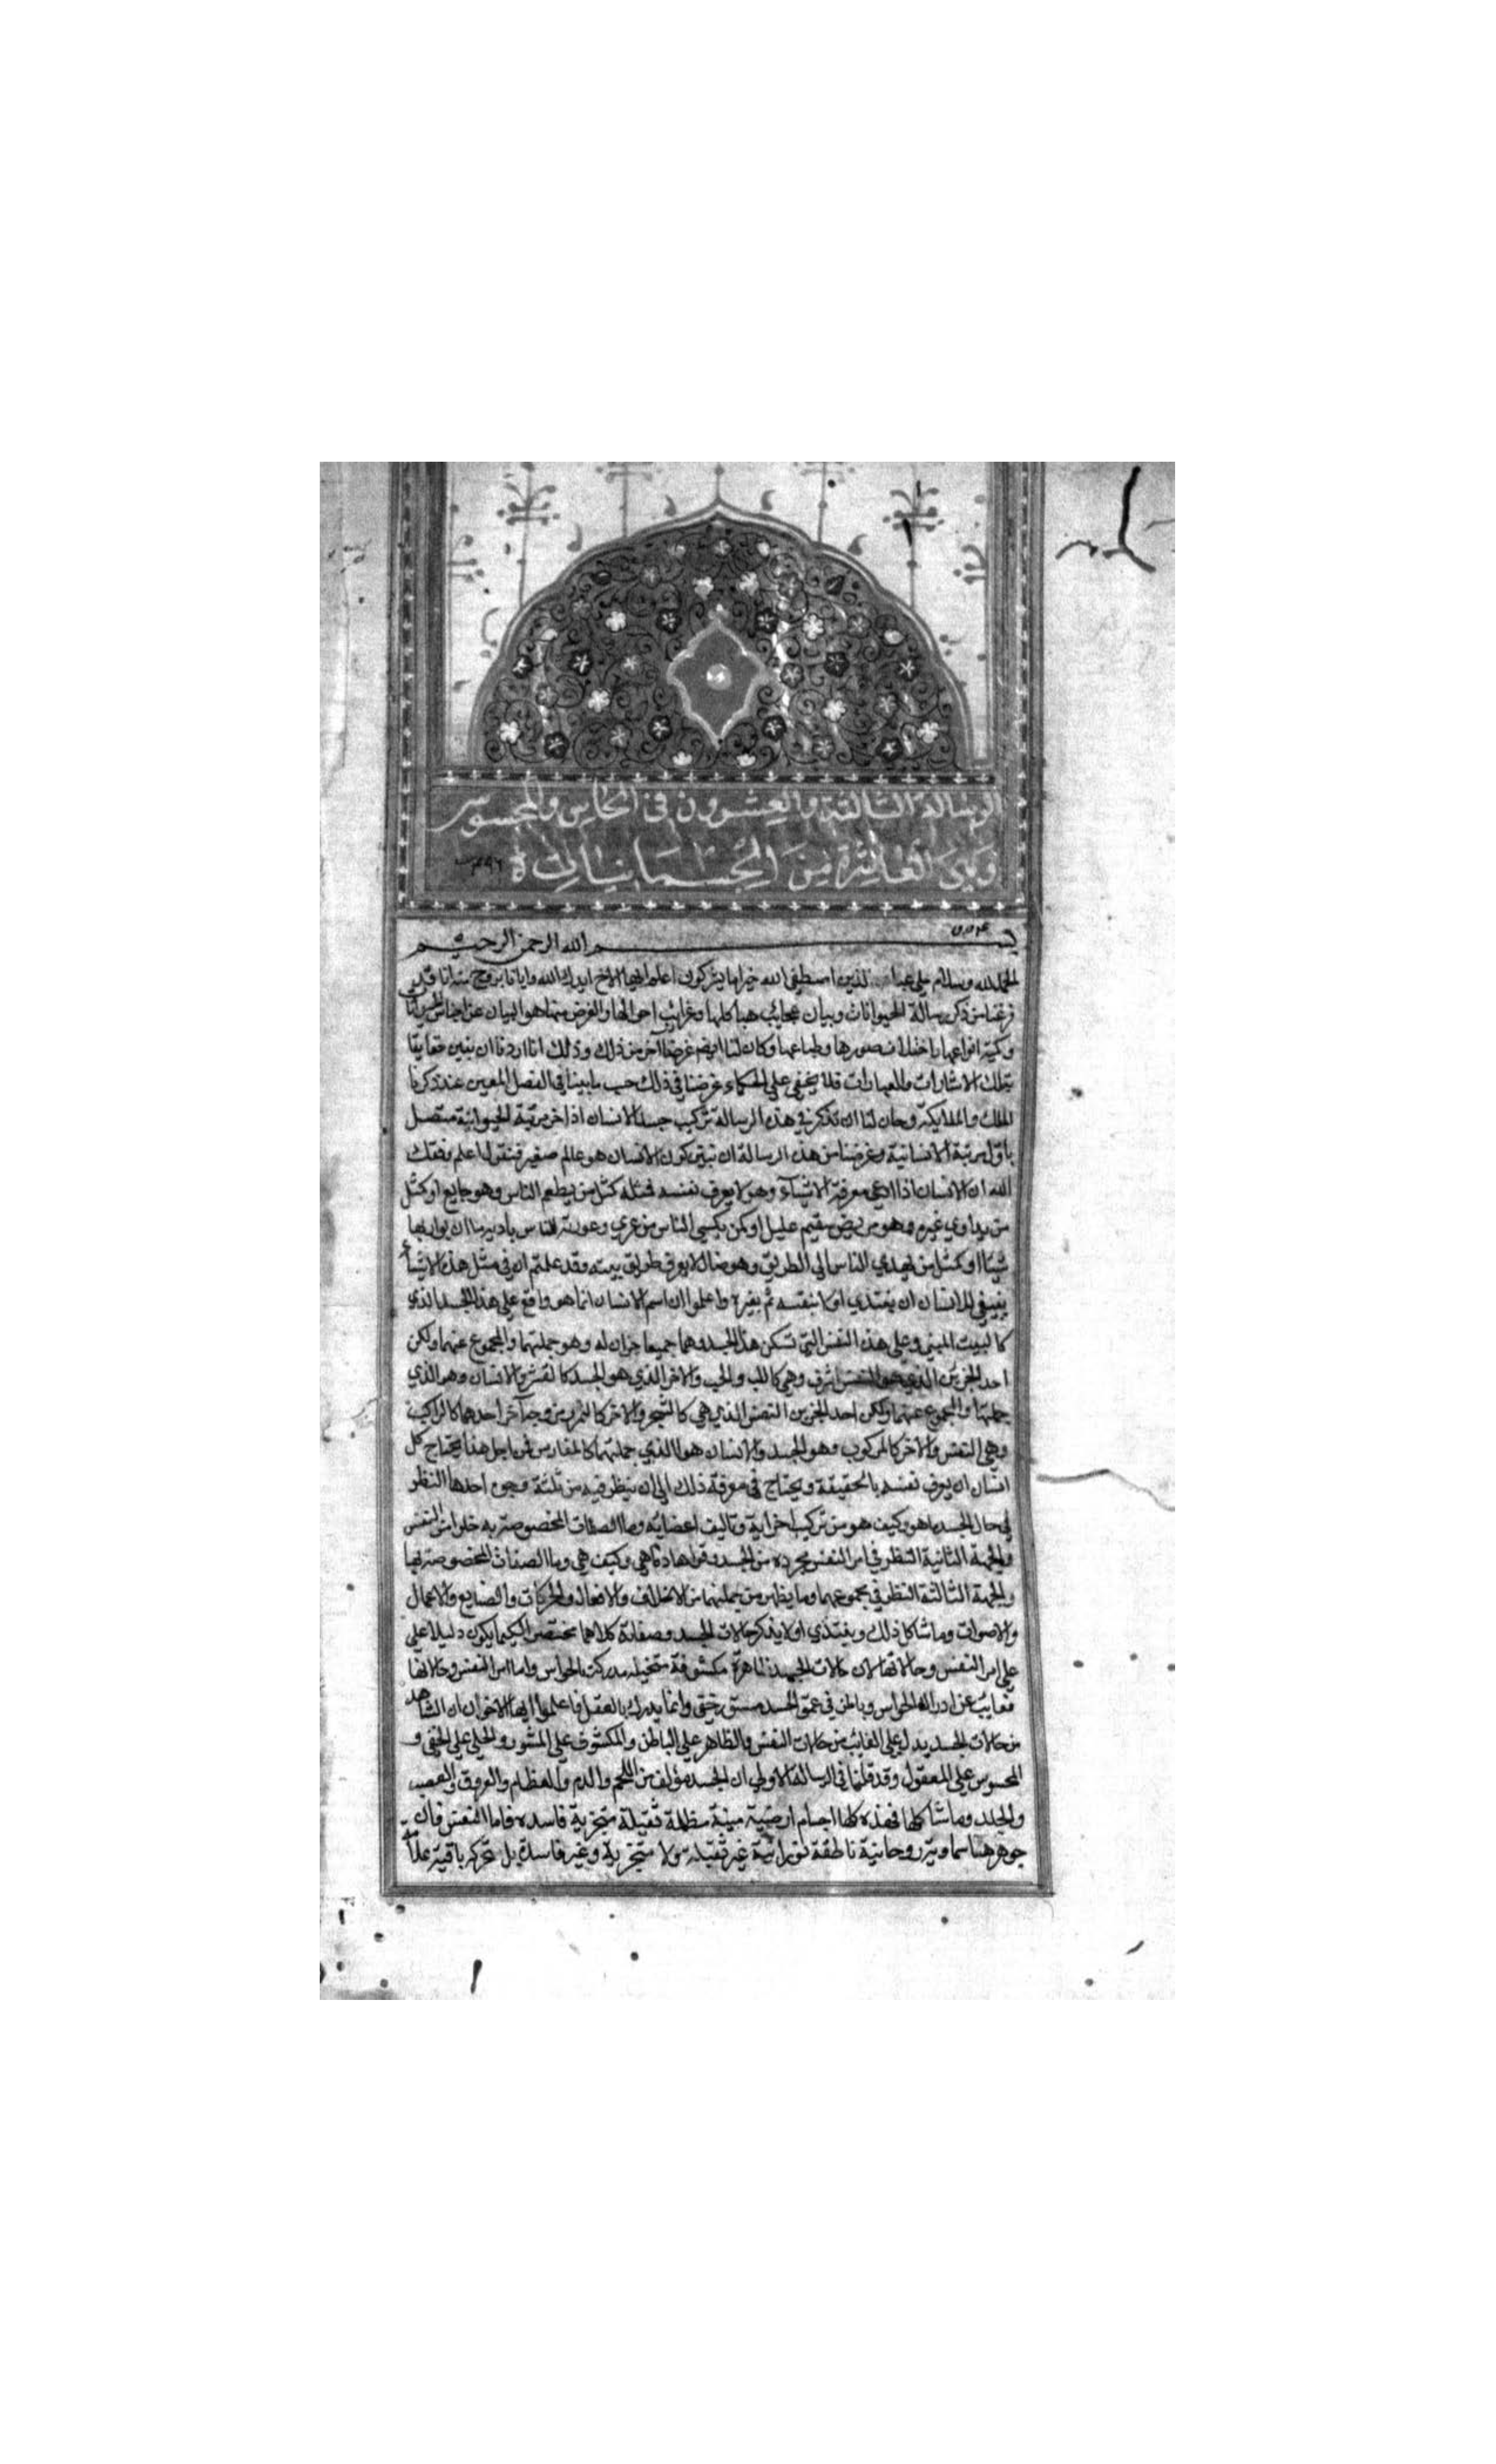 الرسالة الثالثة والعشرون في الحاس والمحسوس
وهي العاشرة من الجسمانيات
بسم الله الرحمن الرحيم
الحمد لله وسلام على عباده الذين اصطفى الله خير اما يشركون اعلم ايها الاخ ايدك الله وايانا بروح منه انا قد
فرغنا من ذكر رسالة الحيوانات وبيان عجايب هياكلها وغرائب احوالها والغرض منها هو البيان عن اجناس الحيوانات
وكمية انواعها باختلاف صورها وطباعها وكان لنا ايضا غرضا آخر من ذلك وذلك انا اردنا ان نبين حقايقا
بتلك الاشارات والعبارات فلا يخفى على الحكماء غرضنا في ذلك حسب ما بينا في الفصل المعين عند ذكرنا
الملك والملايكة وحان لنا ان نذكر في هذه الرسالة تركيب جسد الانسان اذ اخر مرتبة الحيوانية متصل
باول مرتبة الانسانية وغرضنا من هذه الرسالة ان نبين كون الانسان هو عالم صغير فنقول اعلم وفقك
الله ان الانسان اذا ادعى معرفة الاشياء وهو لا يعرف نفسه فمثله كمثل من يطعم الناس وهو جايع او كمثل
من يداوي غيره وهو مريض سقيم عليل او كمن يكسي الناس من عري وعورته للناس بادية ما ان يواريها
شيئا او كمثل من يهدي الناس الى الطريق وهو ضال لا يعرف طريق بيته وقد علمتم ان في مثل هذه الاشياء
ينبغي للانسان ان يبتدي اولا بنفسه ثم بغيره واعلموا ان اسم الانسان انما هو واقع على هذا الجسد الذي
كالبيت المبني وعلى هذه النفس التي تسكن هذا الجسد وهما جميعا جزان له وهو جملتهما والمجموع عنهما ولكن
احد الجزين الذي هو النفس اشرف وهي كاللب والحب والاخر الذي هو الجسد كالقشر والانسان وهو الذي
جملتها والمجموع عنهما ولكن احد الجزين النفس الذي هي كالشجر والاخر كالثمر ومن وجه آخر احدهما كالراكب
وهي النفس والاخر كالمركوب وهو الجسد والانسان هو الذي جملتهما كالفارس فمن اجل هذا يحتاج كل
انسان ان يعرف نفسه بالحقيقة ويحتاج في معرفة ذلك الى ان ينظر فيه من ثلثة وجوه احدها النظر
في حال الجسد ما هو وكيف هو من تركيب اجزايه وتاليف اعضايه وما الصفات المخصوصة به خلوا من النفس
والجهة الثانية النظر في امر النفس مجردة من الجسد وقواها ما هي وكيف هي وما الصفات المخصوصة بها
والجهة الثالثة النظر في مجموعهما وما يظهر من جملتهما من الاخلاف والافعال والحركات والصنايع والاعمال
والاصوات وما شاكل ذلك ونبتدي اولا بذكر حالات الجسد وصفاته كلاما مختصرا لكيما يكون دليلا على
على امر النفس وحالاتها لان حالات الجسد ظاهرة مكشوفة متخيلة مدركة بالحواس واما امر النفس وحالاتها
فغايب عن ادراك الحواس وباطن في عمق الجسد مستور خفي وانما يدرك بالعقل فاعلموا ايها الاخوان ان الشاهد
من حالات الجسد يدل على الغايب من حالات النفس والظاهر على الباطن والمكشوف على المستور والجلي على الخفي و
المحسوس على المعقول وقد قلنا في الرسالة الاولى ان الجسد مؤلف من اللحم والدم والعظام والعروق والعصب
والجلد وما شاكلها فهذه كلها اجسام ارضية ميتة مظلمة ثقيلة متجزية فاسده فاما النفس فان
جوهرهنا سماوية روحانية ناطقة نورانية غير ثقيلة ولا متجزية وغير فاسدة بل متحركه باقية علامة